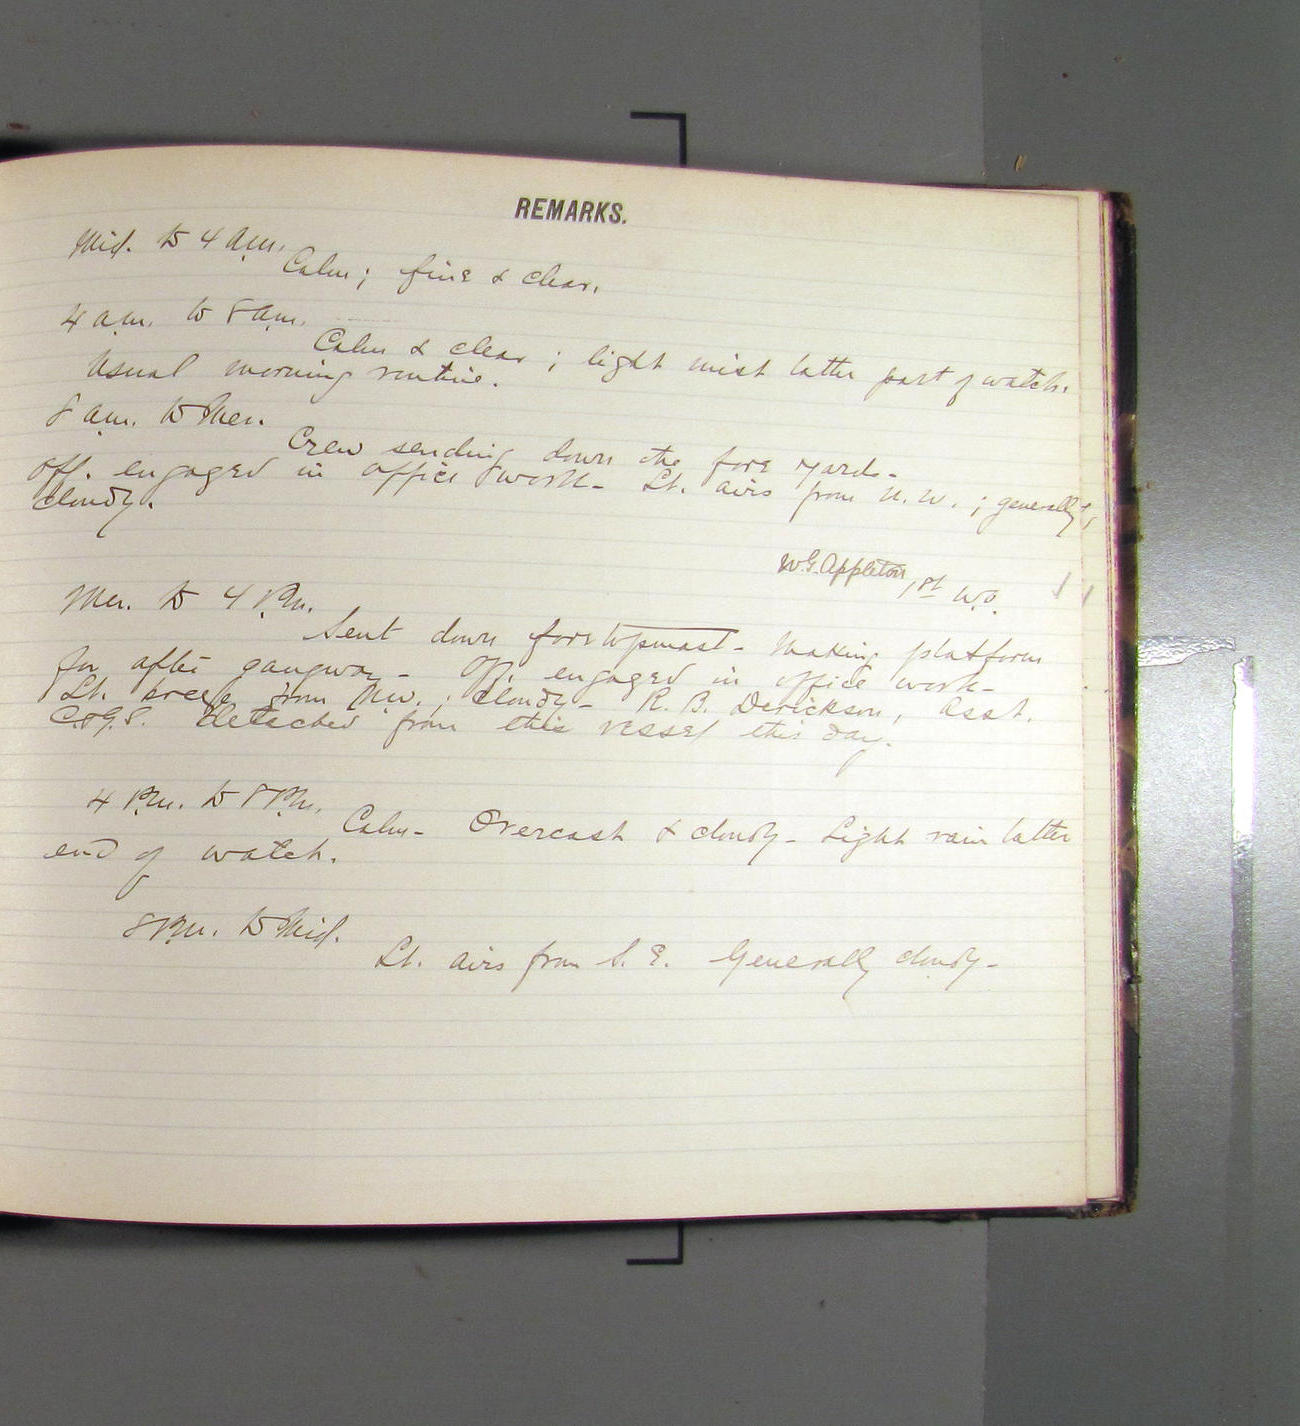 REMARKS.
Mid. to 4 a.m.
Calm; fine & clear.
4 a.m. to 8 a.m.
Calm & clear; light mist latter part of watch.
Usual morning routine.
8 a.m. to Mer.
Crew sending down the fore yard-
Off. engaged in office work- Lt. airs from N.W.; generally
cloudy.
W.G. Appleton, 1st W.O.
Mer. to 4 P.m.
Sent down foretopmast- Making platform
for after gangway- Off. engaged in office work-
Lt. breeze from N.W.; Cloudy- R. B. Derickson, Asst.
C&G.S. detached from this vessel this day.
4 P.m. to 8 P.m.
Calm- Overcast & cloudy- Light rain latter
end of watch.
8 P.m. to Mid.
Lt. airs from S. E. Generally cloudy-